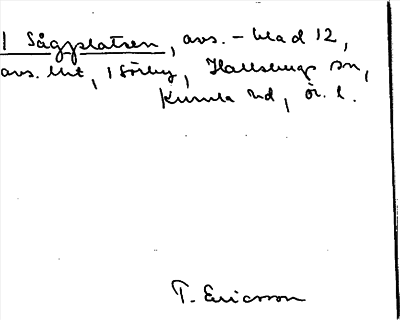 1 Sågplatsen, avs. - blad 12,
avs. lht, 1 Sörby, Hallsbergs sn,
Kumla hd, ör. l.
T. Ericsson